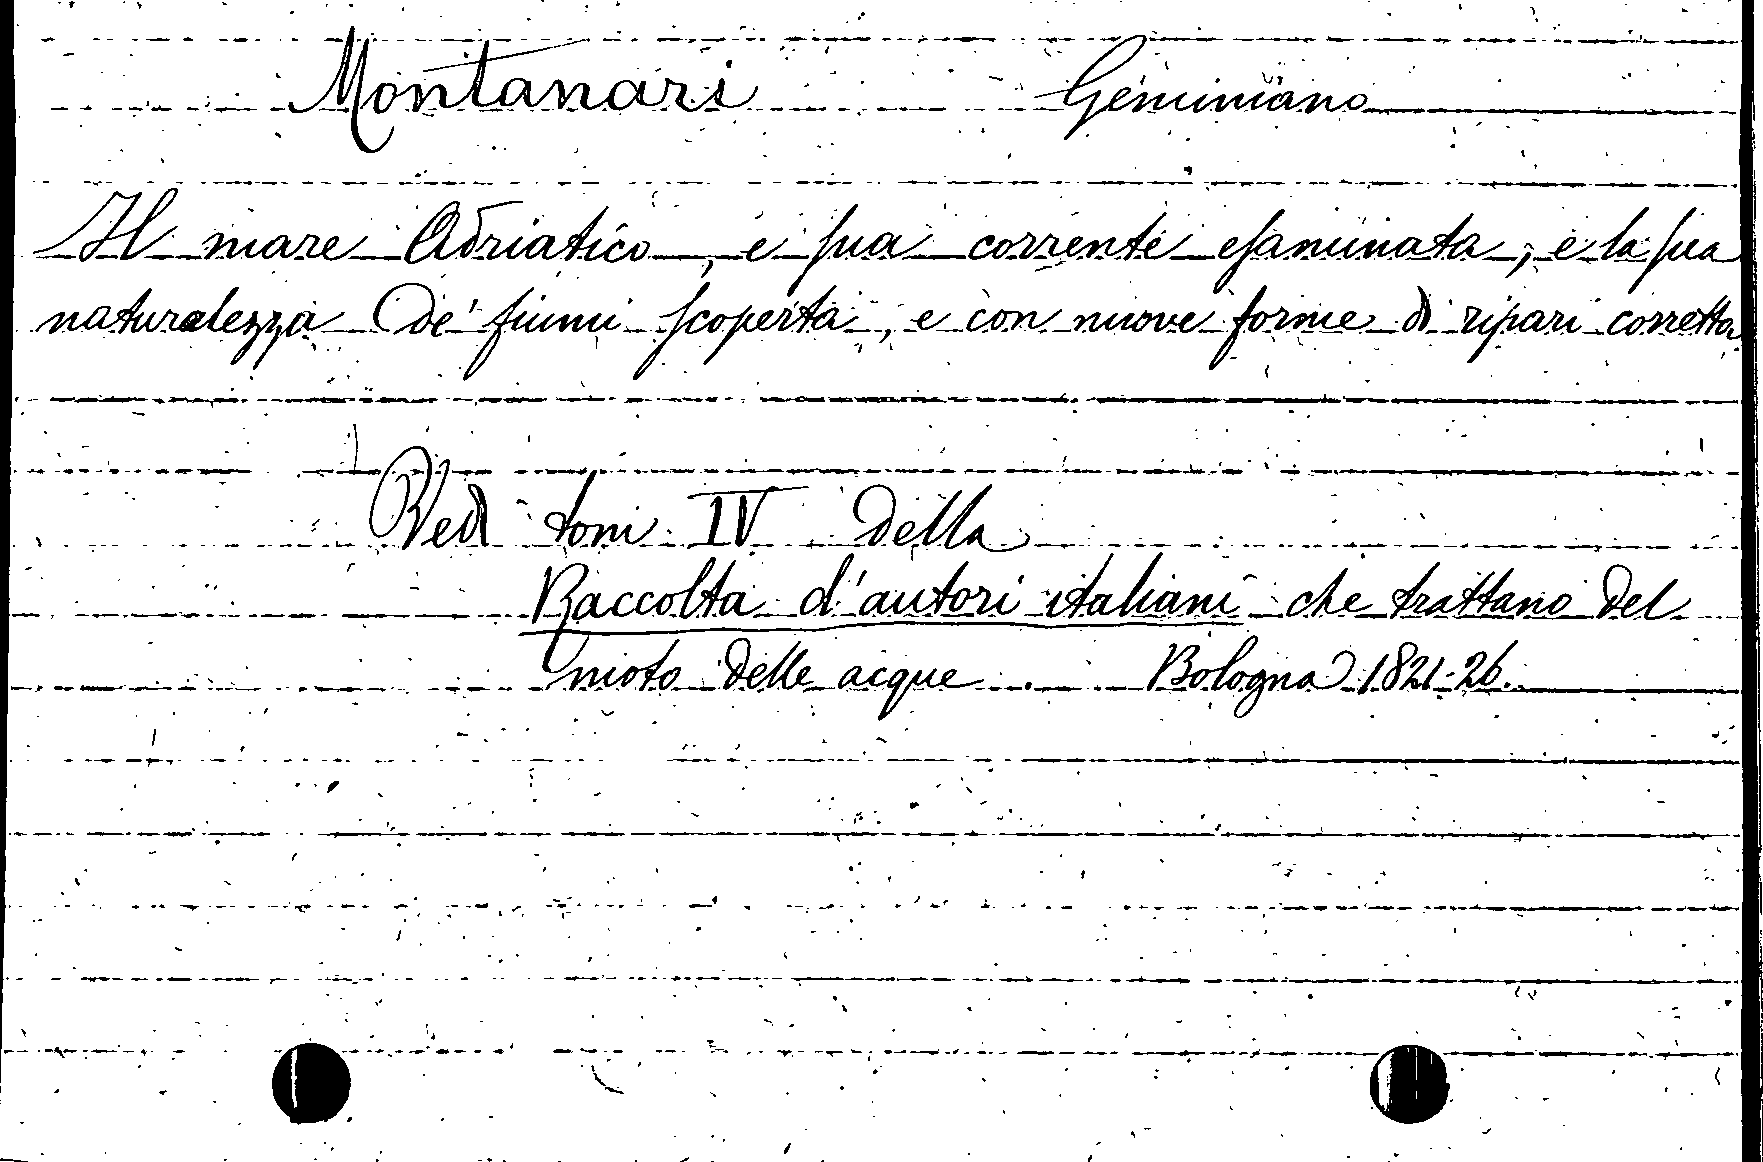 Montanari Geminiano
Il mare Adriatico, e sua corrente esaminata, e la sua
naturalezza de' fiumi scoperta, e con nuove forme di ripari corretta
Vedi tom. IV della
Raccolta d'autori italiani che trattano del
moto delle acque. Bologna 1821-26.